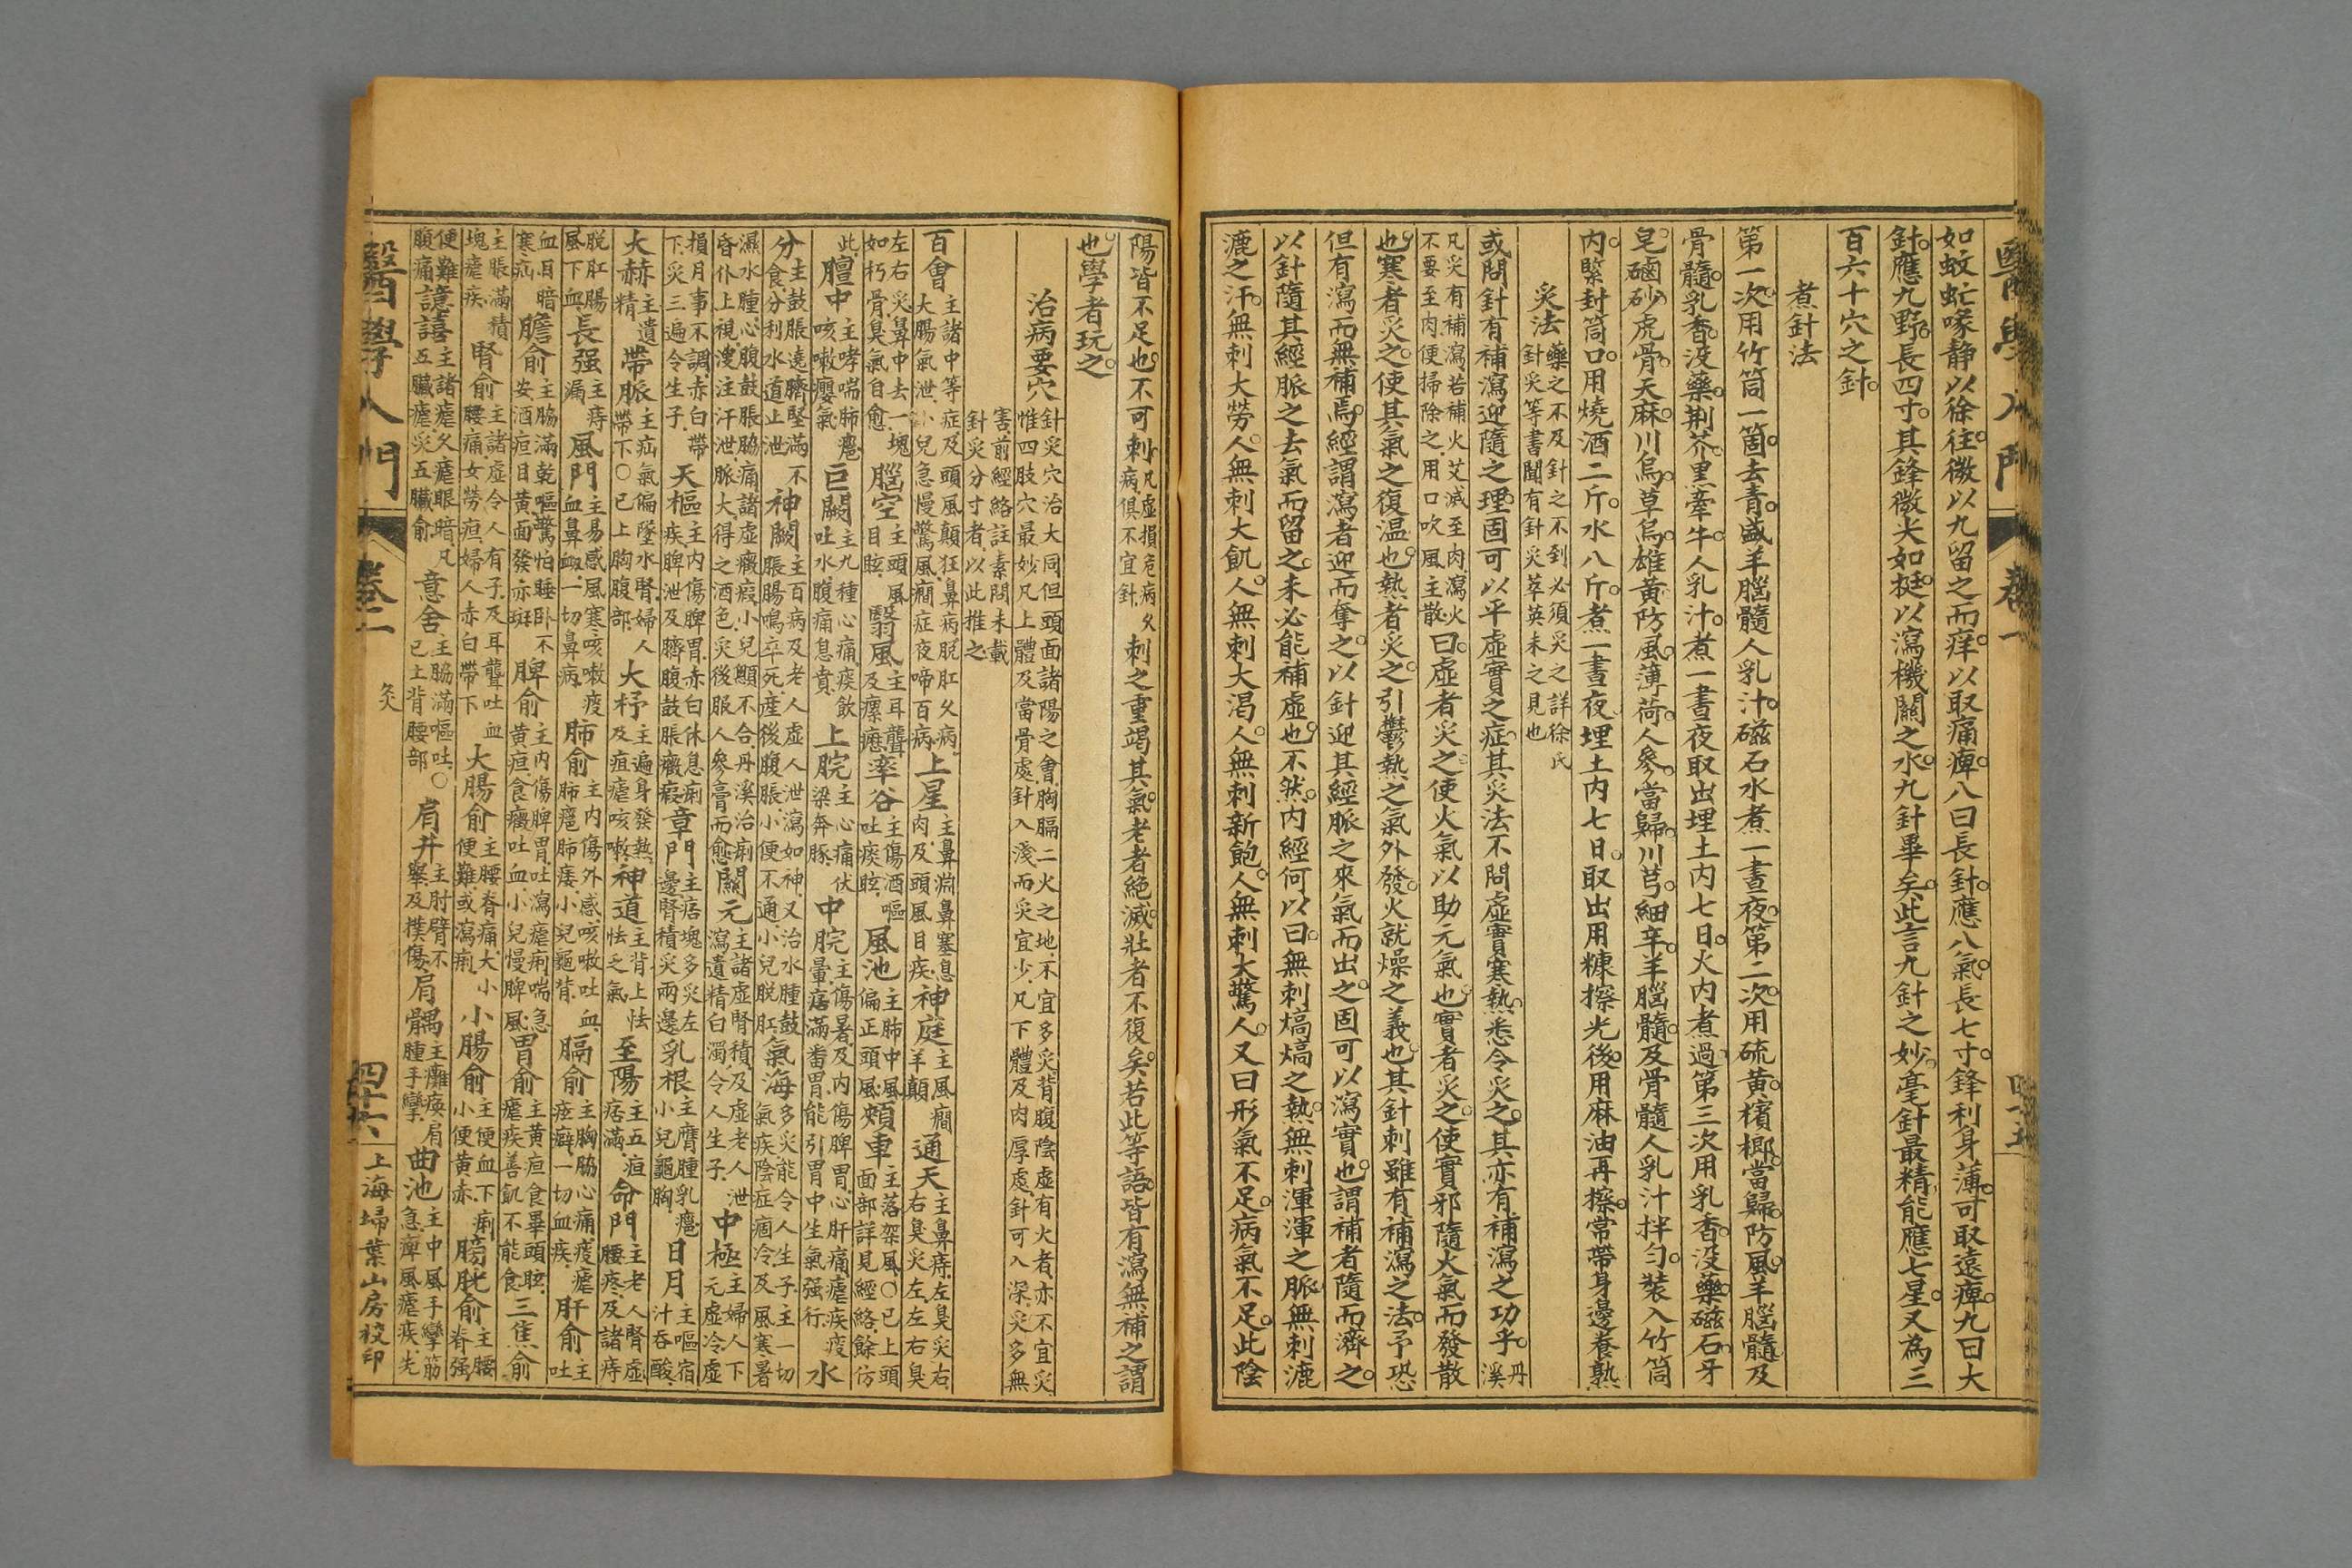 醫學入門 卷一 四十五
如蚊虻喙靜以徐往微以九留之而痒以取痛痺八曰長針應八氣長七寸鋒利身薄可取遠痺九曰大
針應九野長四寸其鋒微尖如挺以瀉機關之水九針畢矣此言九針之妙毫針最精能應七星又為三
百六十穴之針
煮針法
第一次用竹筒一箇去青盛羊腦髓人乳汁磁石水煮一晝夜第二次用硫黃檳榔當歸防風羊腦髓及
骨髓乳香沒藥荆芥黑牽牛人乳汁煮一晝夜取出埋土內七日火內煮過第三次用乳香沒藥磁石牙
皂磠砂虎骨天麻川烏草烏雄黃防風薄荷人參當歸川芎細辛羊腦髓及骨髓人乳汁拌勻裝入竹筒
內緊封筒口用燒酒二斤水八斤煮一晝夜埋土內七日取出用糠擦光後用麻油再擦常帶身邊養熟
灸法 藥之不及針之不到必須灸之詳徐氏
針灸等書聞有針灸萃英未之見也
或問針有補瀉迎隨之理固可以平虛實之症其灸法不問虛實寒熱悉令灸之其亦有補瀉之功乎 丹
溪
凡灸有補瀉若補火艾滅至肉瀉火
不要至肉便掃除之用口吹風主散 曰虛者灸之使火氣以助元氣也實者灸之使實邪隨火氣而發散
也寒者灸之使其氣之復温也熱者灸之引鬱熱之氣外發火就燥之義也其針刺雖有補瀉之法予恐
但有瀉而無補焉經謂瀉者迎而奪之以針迎其經脈之來氣而出之固可以瀉實也謂補者隨而濟之
以針隨其經脈之去氣而留之未必能補虛也不然內經何以曰無刺熇熇之熱無刺渾渾之脈無刺漉
漉之汗無刺大勞人無刺大飢人無刺大渴人無刺新飽人無刺大驚人又曰形氣不足病氣不足此陰
陽皆不足也不可刺 凡虛損危病久
病俱不宜針 刺之重竭其氣老者絕滅壯者不復矣若此等語皆有瀉無補之謂
也學者玩之
治病要穴 針灸穴治大同但頭面諸陽之會胸膈二火之地不宜多灸背腹陰虛有火者亦不宜灸
惟四肢穴最妙凡上體及當骨處針入淺而灸宜少凡下體及肉厚處針可入深灸多無
害前經絡註素問未載
針灸分寸者以此推之
百會 主諸中等症及頭風顛狂鼻病脫肛久病
大腸氣泄小兒急慢驚風癎症夜啼百病 上星 主鼻淵鼻塞息
肉及頭風目疾 神庭 主風癎
羊顛 通天 主鼻痔左臭灸右
右臭灸左左右臭
左右灸鼻中去一塊
如朽骨臭氣自愈 腦空 主頭風
目眩 翳風 主耳聾
及瘰癧 率谷 主傷酒嘔
吐痰眩 風池 主肺中風
偏正頭風 頰車 主落架風〇已上頭
面部詳見經絡餘仿
此 膻中 主哮喘肺癰
咳嗽癭氣 巨闕 主九種心痛痰飲
吐水腹痛息賁 上脘 主心痛伏
梁奔豚 中脘 主傷暑及內傷脾胃心肝痛瘧疾痰
暈痞滿番胃能引胃中生氣强行 水
分 主鼓脹遶臍堅滿不
食分利水道止泄 神闕 主百病及老人虛人泄瀉如神又治水腫鼓
脹腸鳴卒死產後腹脹小便不通小兒脫肛 氣海 多灸能令人生子主一切
氣疾陰症痼冷及風寒暑
濕水腫心腹鼓脹脇痛諸虛癥瘕小兒顖不合丹溪治痢
昏仆上視溲注汗泄脈大得之酒色灸後服人參膏而愈 關元 主諸虛腎積及虛老人泄
瀉遺精白濁令人生子 中極 主婦人下
元虛冷虛
損月事不調赤白帶
下灸三遍令生子 天樞 主內傷脾胃赤白休息痢
疾脾泄及臍腹鼓脹癥瘕 章門 主痞塊多灸左
邊腎積灸兩邊 乳根 主膺腫乳癰
小兒龜胸 日月 主嘔宿
汁吞酸
大赫 主遺
精 帶脈 主疝氣偏墜水腎婦人
帶下〇已上胸腹部 大杼 主遍身發熱
及疽瘧咳嗽 神道 主背上怯
怯乏氣 至陽 主五疸
痞滿 命門 主老人腎虛
腰疼及諸痔
脫肛腸
風下血 長强 主痔
漏 風門 主易感風寒咳嗽痰
血鼻衂一切鼻病 肺俞 主內傷外感咳嗽吐血
肺癰肺痿小兒龜背 膈俞 主胸脇心痛痰瘧
痃癖一切血疾 肝俞 主
吐
血目暗
寒疝 膽俞 主脇滿乾嘔驚怕睡臥不
安酒疸目黃面發赤斑 脾俞 主內傷脾胃吐瀉瘧痢喘急
黃疸食癥吐血小兒慢脾風 胃俞 主黃疸食畢頭眩
瘧疾善飢不能食 三焦俞
主脹滿積
塊瘧疾 腎俞 主諸虛令人有子及耳聾吐血
腰痛女勞疸婦人赤白帶下 大腸俞 主腰脊痛大小
便難或瀉痢 小腸俞 主便血下痢
小便黃赤 膀胱俞 主腰
脊强
便難
腹痛 譩譆 主諸瘧久瘧眼暗凡
五臟瘧灸五臟俞 意舍 主脇滿嘔吐〇
已上背腰部 肩井 主肘臂不
舉及撲傷 肩髃 主癱瘓肩
腫手攣 曲池 主中風手攣筋
急痺風瘧疾先
醫學入門 卷一 灸 四十六 上海埽葉山房校印